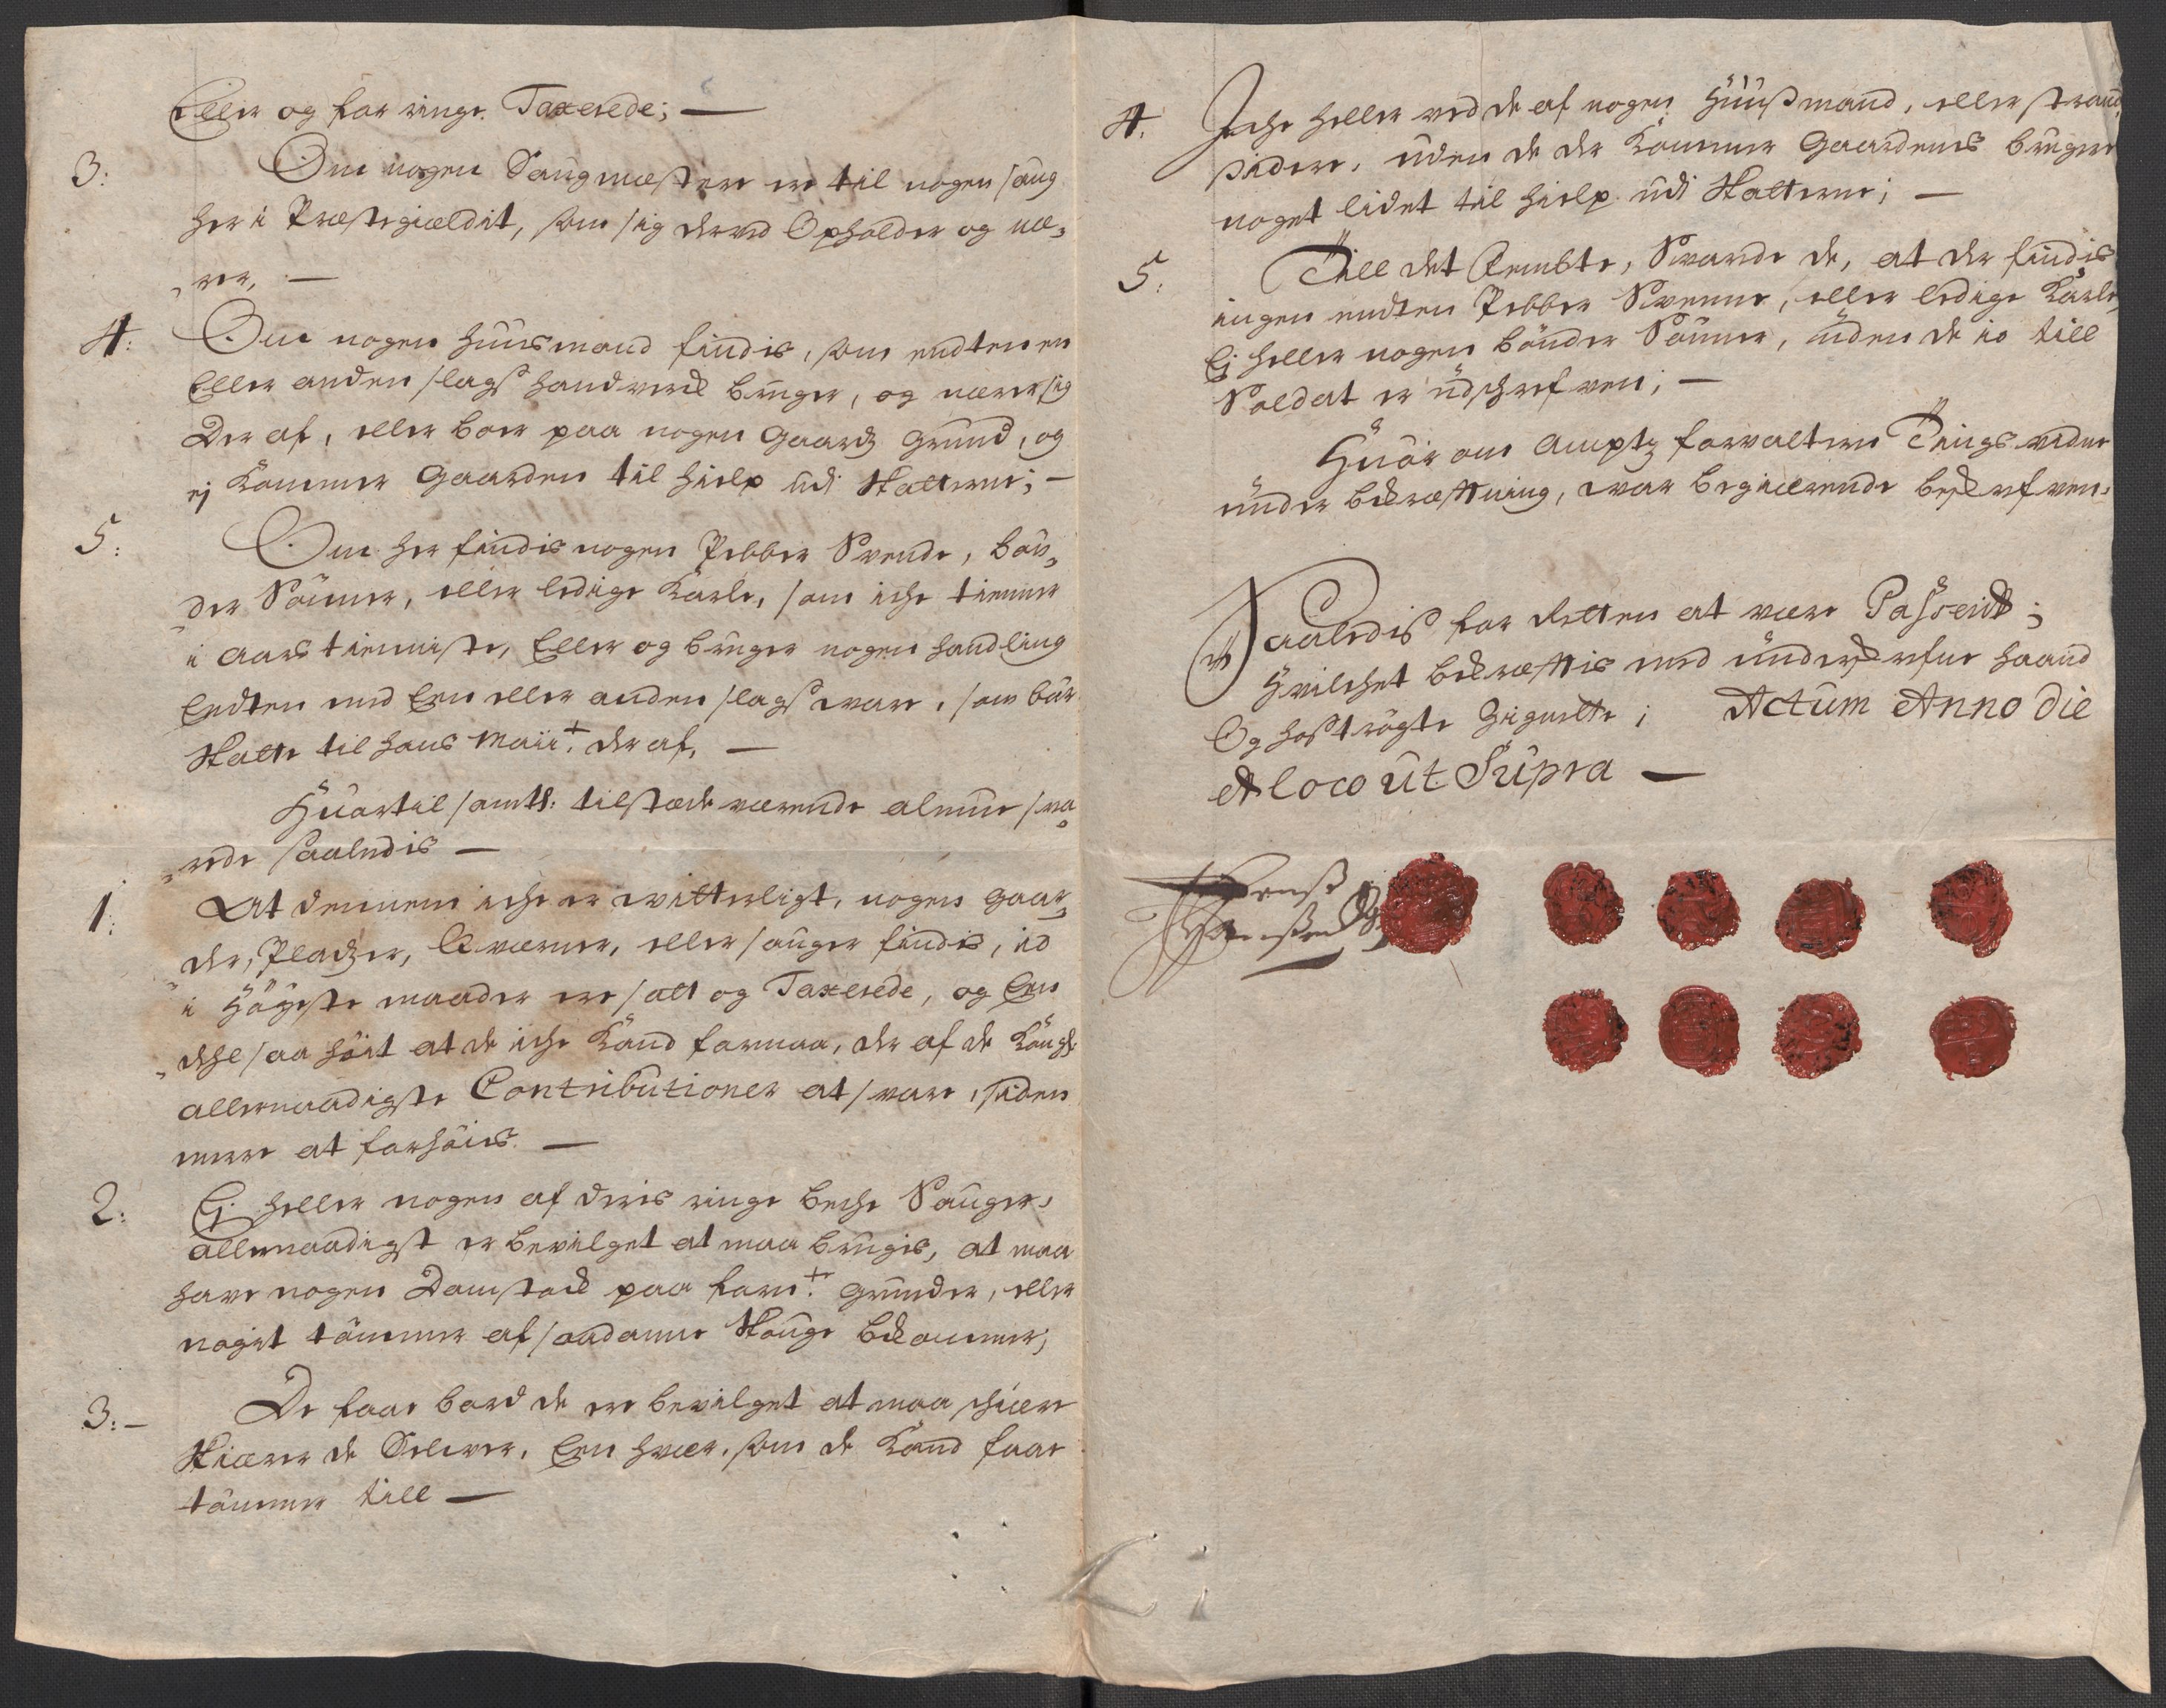 Eller og for ringe Taxerede; —
3: Om nogen Saugmestere ere til nogen saug
her i Præstegieldet, som sig derved Opholder og næ-
rer, —
4: Om nogen huusmand findis, som endten en
Eller anden slags handverck bruger, og nærer sig
Der af, eller boer paa nogen Gaardz grund, og
ej kommer Gaarden til hielp udi Skatterne; —
5: Om her findis nogen Pebber Svende, bøn-
der Sønner, eller ledige Karle, som iche tienner
i Aars tienniste, Eller og bruger nogen handling
Endten med Een eller anden slags ware, som bør
Skatte til hans Maii:t der af, —
Huortil samtl: tilstædeværende almue sva-
rede saaledis —
1: At dennem iche er witterligt, nogen gaar-
der, Pladzer, Qværner, eller sauger findis, io
i Høyeste maader ere satt og Taxerede, og Een
dehl saa høit at de iche kand formaa, der af de kongl:
allernaadigste Contributioner at svare, siden
mere at forhøies. —
2: Ej heller nogen af deris ringe beche Sauger,
allernaadigst er bevilget at maa brugis, at maa
have nogen Damstoch paa form:t grunder, eller
noget tømmer af saadanne Skouge bekommer;
3: — De faae bord de ere bevilget at maa schiære
Skiærer de Selver, Een hver, som de kand faae
tømmer till —
4. Iche heller ved de af nogen Huusmand, eller strand
sidere, uden de der kommer Gaardens bruger
noget lidet til hielp udi Skatterne; —
5: Till det Fembte, Svarede de, at der findis
ingen endten Pebber Svenne, eller ledige Karle,
Ej heller nogen bønder Sønner, uden de io till
Soldat er udschrefven; —
Huor om Amptz forvalteren Tingsvidne
under bekræfttning, war begierende beschrefven.
Saaledis for Retten at være Passeret;
Hvilchet bekræfttis med underschrefne haand
Og hoströgte Zignette; Actum Anno die
et loco ut Supra —